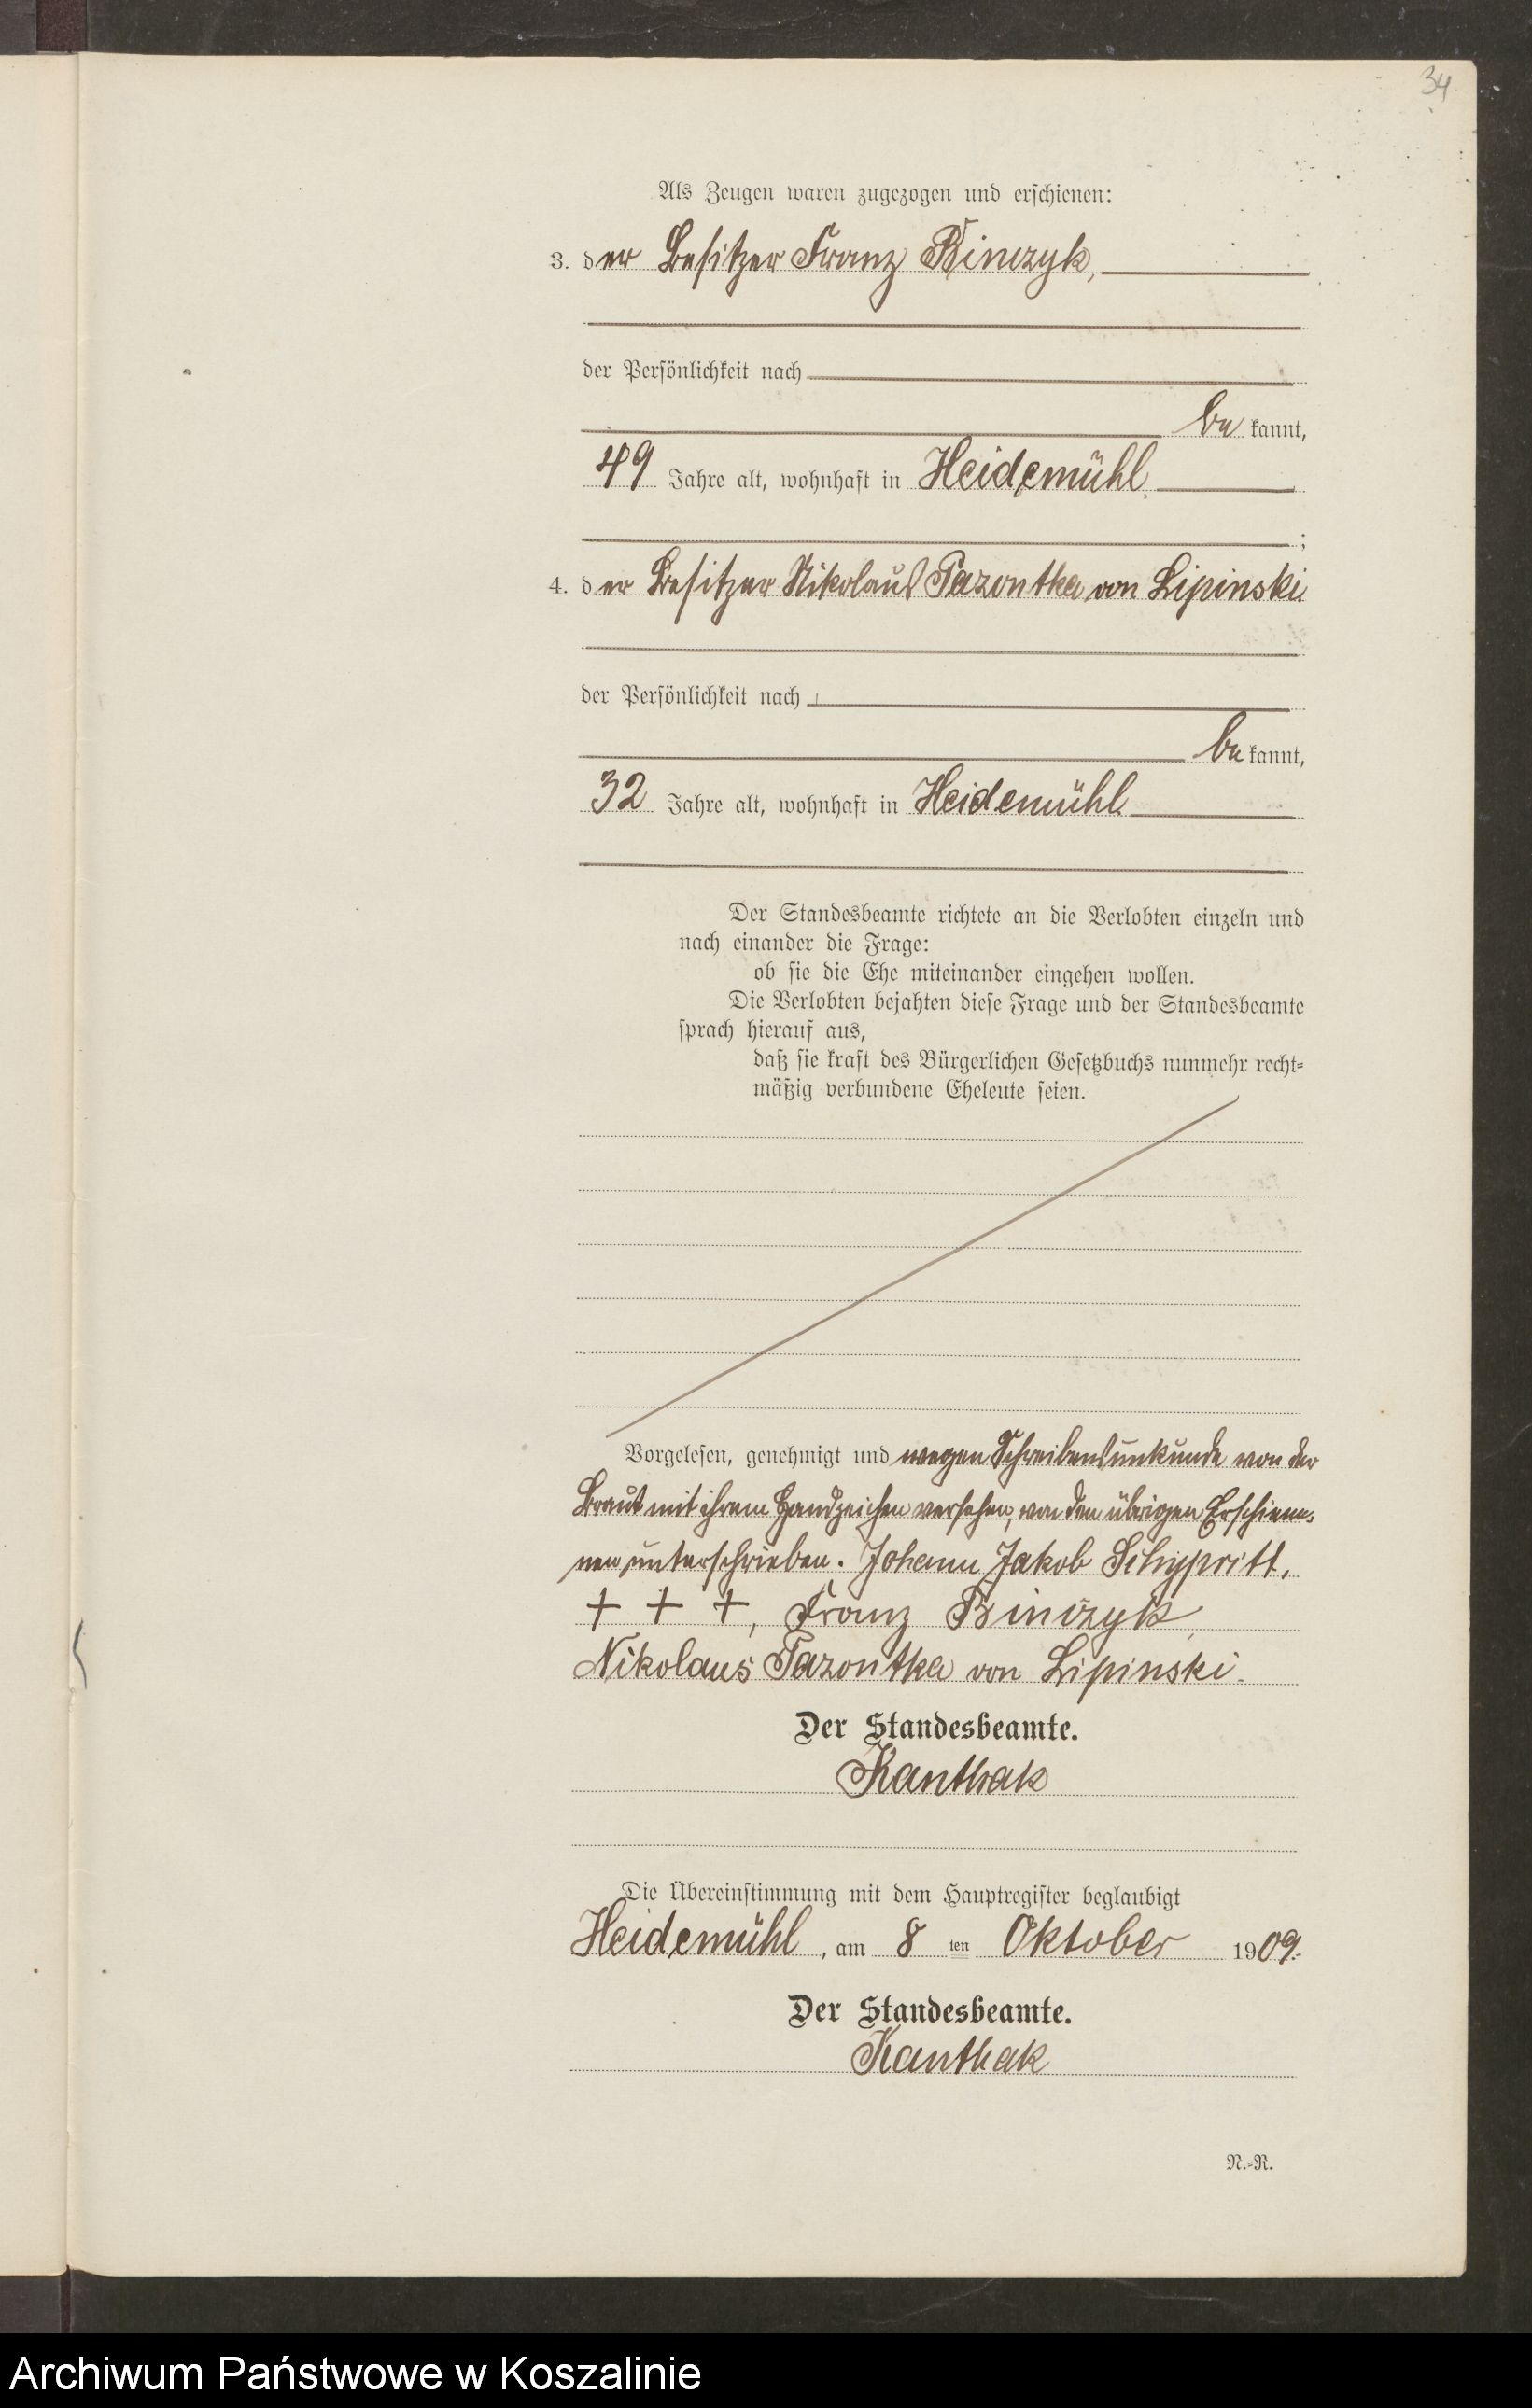 34
Als Zeugen waren zugezogen und erschienen:
3. der Besitzer Franz Binczyk,
der Persönlichkeit nach
be kannt,
49 Jahre alt, wohnhaft in Heidemühl
;
4. der Besitzer Nikolaus Pazontka von Lipinski
der Persönlichkeit nach
be kannt,
32 Jahre alt, wohnhaft in Heidemühl
Der Standesbeamte richtete an die Verlobten einzeln und
nach einander die Frage:
ob sie die Ehe miteinander eingehen wollen.
Die Verlobten bejahten diese Frage und der Standesbeamte
sprach hierauf aus,
daß sie kraft des Bürgerlichen Gesetzbuchs nunmehr recht-
mäßig verbundene Eheleute seien.
Vorgelesen, genehmigt und wegen Schreibensunkunde von der
Braut mit ihrem Handzeichen versehen, von den übrigen Erschiene-
nen unterschrieben. Johann Jakob Schypritt,
+ + +, Franz Binczyk,
Nikolaus Pazontka von Lipinski.
Der Standesbeamte.
Kanthak
Die Übereinstimmung mit dem Hauptregister beglaubigt
Heidemühl, am 8 ten Oktober 1909.
Der Standesbeamte.
Kanthak
N.-R.
Archiwum Państwowe w Koszalinie